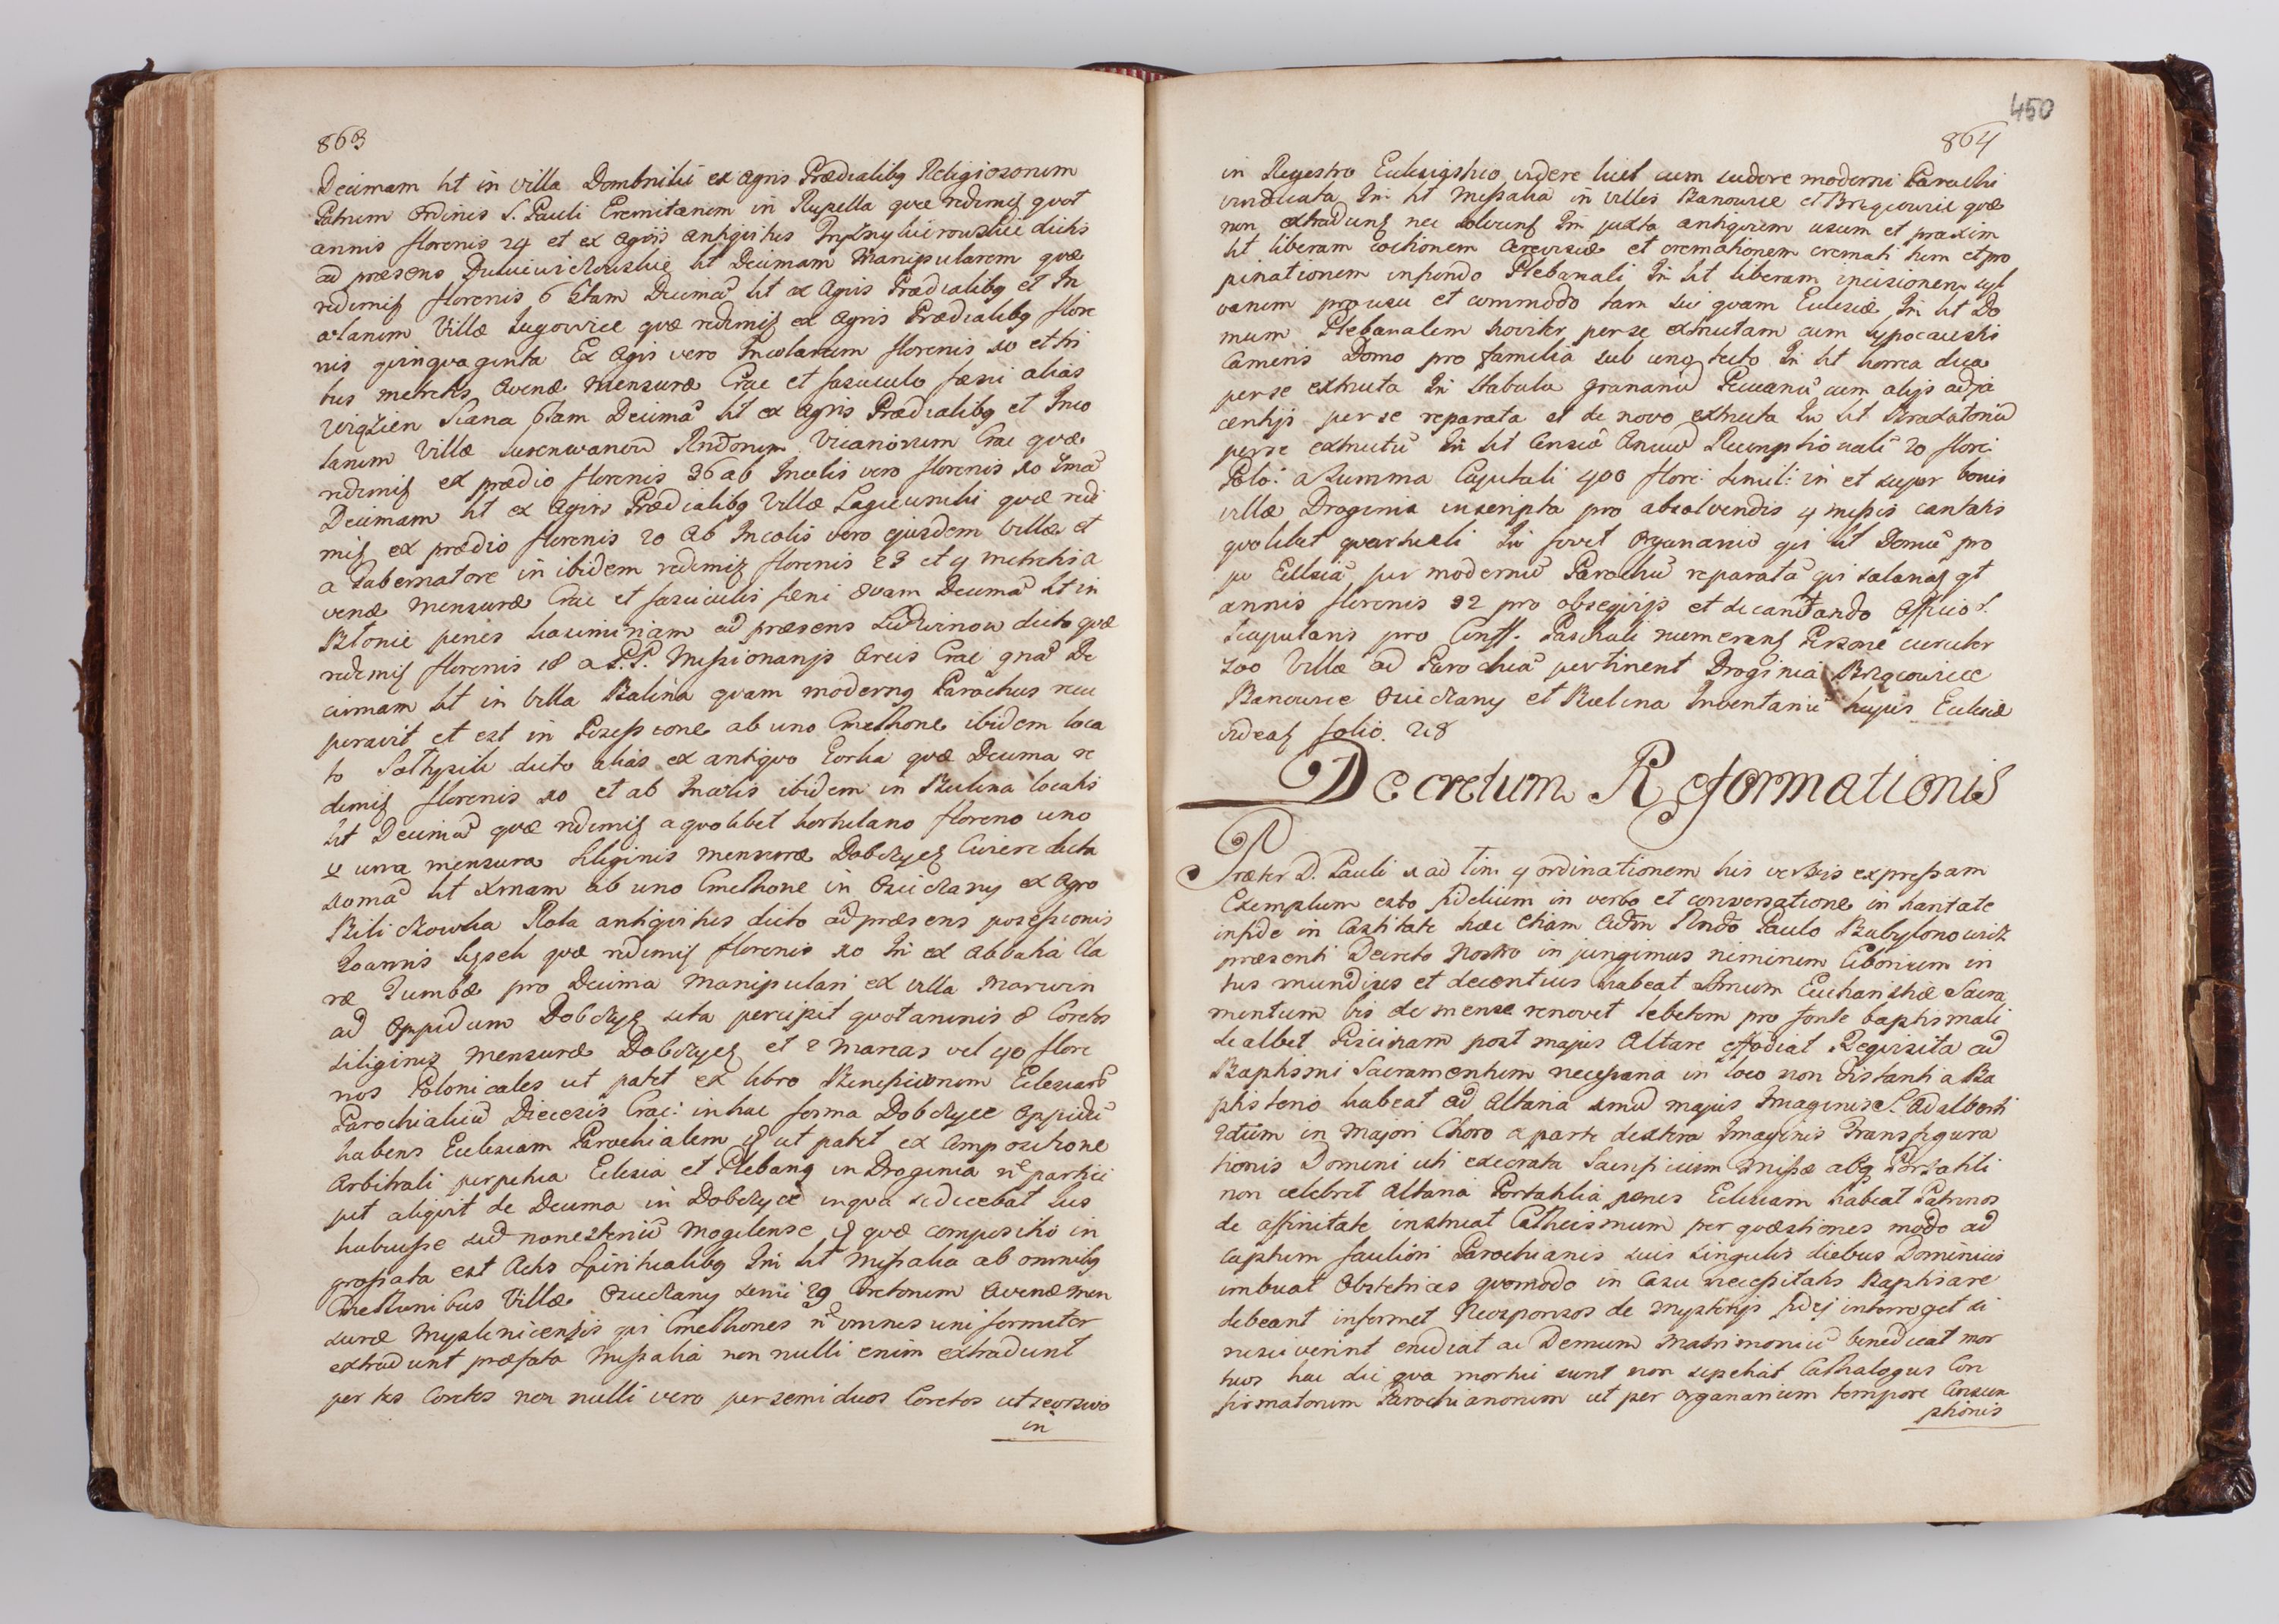 863
Decimam ht in villa Dombriliĭ ex agris Prædialibꝫ Religiosorum
Patrum Ordinis S. Pauli Eremitarum in Rupella quæ redimiꝫ quot
annis florenis 24 et ex agris antiquitus dictis
ad præsens ht Decimam Manipularem quæ
redimiꝫ florenis 6 Decimã ht ex agris Prædialibꝫ et In
colarum Villæ Lugowice quæ redimiꝫ ex agris Prædialibꝫ flore
nis quinquaginta Ex Agris vero Incolarum florenis 10 et tri
bus metretis avenæ mensuræ Crac et fasciculo fæni alias
Wiązień Siana 6tam Decimã ht ex agris Prædialibꝫ et Inco
larum Villæ Rndorum Vicariorum Crac quæ
redimiꝫ ex prædio florenis 36 ab Incolis vero florenis 10 7mã
Decimam ht ex Agris Prædialibꝫ Villæ quæ redi
miꝫ ex prædio florenis 20 Ab Incolis vero ejusdem Villæ et
a Tabernatore in ibidem redimiꝫ florenis 23 et 4 metretis a
venæ mensuræ Crac et fasciculis fæni 8vam Decimã ht in
penes ad præsens Ludwinow dicto quæ
redimiꝫ florenis 18 a P.P. Missionarijs Arcis Crac gnã De
cimam ht in Villa Balina quam modernꝫ Parochus recu
peravit et est in Possessione ab uno Cmethone ibidem loca
to dicto alias ex antiquo quæ Decima re
dimiꝫ florenis 10 et ab Incolis ibidem in Bulina locatis
ht Decimã quæ redimiꝫ a quolibet hortulano floreno uno
et una mensura siliginis mensuræ dicta
10mã ht Xmam ab uno Cmethone in Osieczany ex Agro
Rola antiquitus dicto ad præsens possessionis
Joannis quæ redimiꝫ florenis 10 In ex Abbatia Cla
ræ Tumbæ pro Decima Manipulari ex villa Marwin
ad Oppidum Dobczyce sita percipit quotannis 8 Coretos
siliginis mensuræ Dobczyce et 2 marcas vel 40 flore
nos Polonicales ut patet ex libro Beneficiorum Ecclesiarũ
Parochialiũ Diecezis Crac: in hac forma Dobczyce Oppidũ
habens Ecclesiam Parochialem ut patet ex compositione
Arbitrali perpetua Eclesia et Plebanꝫ in Droginia nꝫ partici
pit aliquit de Decima in Dobczyce in qua se dicebat Jus
habuisse sed monesteriũ Mogilense quæ compositio in
grossata est Actis Spiritualibꝫ In ht Missalia ab omnibꝫ
Cmethonibus Villæ Osieczany semi 29 Coretorum avenæ men
suræ Myslenicensis qui Cmethones nꝫ omnes uniformiter
extradunt præfata Missalia non nulli enim extradunt
per tes Coretos non nulli vero per semi duos Coretos ut seorsivo
in
450
864
in Regestro Eclesiastico videre licet cum sudore moderni Parochi
vindicata In ht Missalia in villis Banowice et Brzęcowice quæ
non extradunꝫ nec solvunꝫ In juxta antiquum usum et praxim
ht liberam coctionem cerevisiæ et cremationem cremati tum et pro
pinationem in fundo Plebanali In ht liberam incisionem syl
varum pro usu et commodo tam sui quam Eclesiæ In ht Do
mum Plebanalem noviter per se extructam cum hypocaustis
Cameris Domo pro familia sub uno tecto In ht horrea duo
per se extructa In stabula granariũ Pecuariũ cum alijs adja
centijs per se reparata et de novo extructa In ht Braxatoriũ
per se extructũ In ht Censũ Anuũ Reemptionalẽ 20 flore:
Polo: a Summa Capitali 400 flore: simil: in et super bonis
villæ Droginia inscripta pro absolvendis 4 missis cantatis
quolibet quartuali In fovet Organariũ qui ht Domũ pro
pe Ecclesiã per modernũ Parochũ reparatã qui salariaꝫ qt
annis florenis 32 pro obsequijs et decantando Officio S.
Scapularis pro Conff. Paschali numeranꝫ Personæ circiter
700 Villæ ad Parochiã pertinent Droginia Brzęcowice
Banowice Osieczany et Bulina Inventariũ hujus Eclesiæ
videaꝫ folio. 218
Decretum Reformationis
Præter D. Pauli 1 ad Tim: 4 ordinationem his verbis expressam
Exemplum esto fidelium in verbo et conversatione in charitate
in fide in Castitate hæc etiam Adm Rndo Paulo Babylonowicz
præsenti Decreto Nostro injungimus nimirum Ciborium in
tus mundius et decentius habeat Ssmum Eucharistiæ Sacra
mentum bis de mense renovet lebetem pro fonte baptismali
de albet Piscinam post majus Altare effodiat Requisita ad
Baptismi Sacramentum necessaria in loco non distanti a Ba
ptisterio habeat ad Altaria 1mũ majus Imaginis S. Adalberti
2dum in Majori Choro a parte dextera Imaginis Transfigura
tionis Domini uti execrata Sacrificium Missæ absqꝫ Portatili
non celebret Altaria Portatilia penes Eclesiam habeat Patrinos
de affinitate instruat Cathecismum per quæstiones modo ad
captum faciliori Parochianis suis singulis diebus Dominicis
imbuat Obstetrices quomodo in Casu necessitatis Baptisare
debeant informet Neosponsos de mysterijs fidej interroget si
nesciverint erudiat ac Demum Matrimoniũ benedicat mor
tuos hac die qua mortui sunt non sepeliat Cathalogus Con
firmatorum Parochianorum ut per Organarium tempore Conscri
ptionis